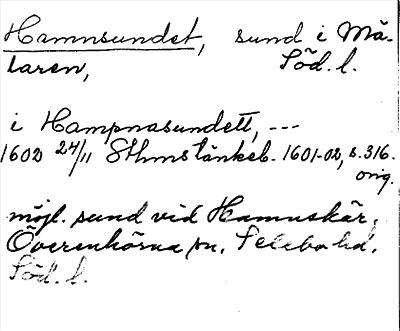 Hamnsundet, sund i Mä-
laren, Söd. l.
i Hampnasundett, ---
1602 24/11 Sthms tänkeb. 1601-02, s. 316.
orig.
möjl. sund vid Hamnskär,
Överenhörna sn, Selebo hd,
Söd. l.